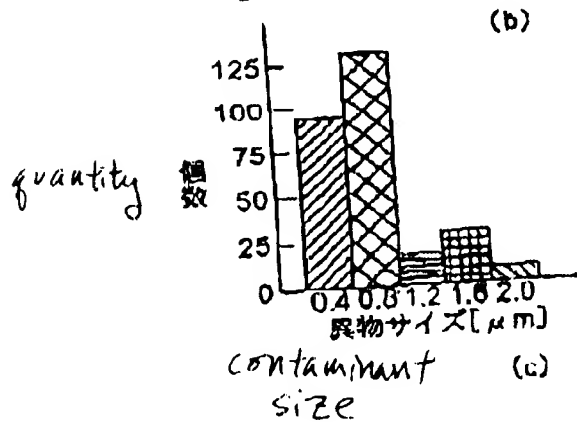 (b)
125
100
75
50
25
0
quantity
個数
0.4 0.8 1.2 1.6 2.0
異物サイズ[μm]
contaminant
size
(c)